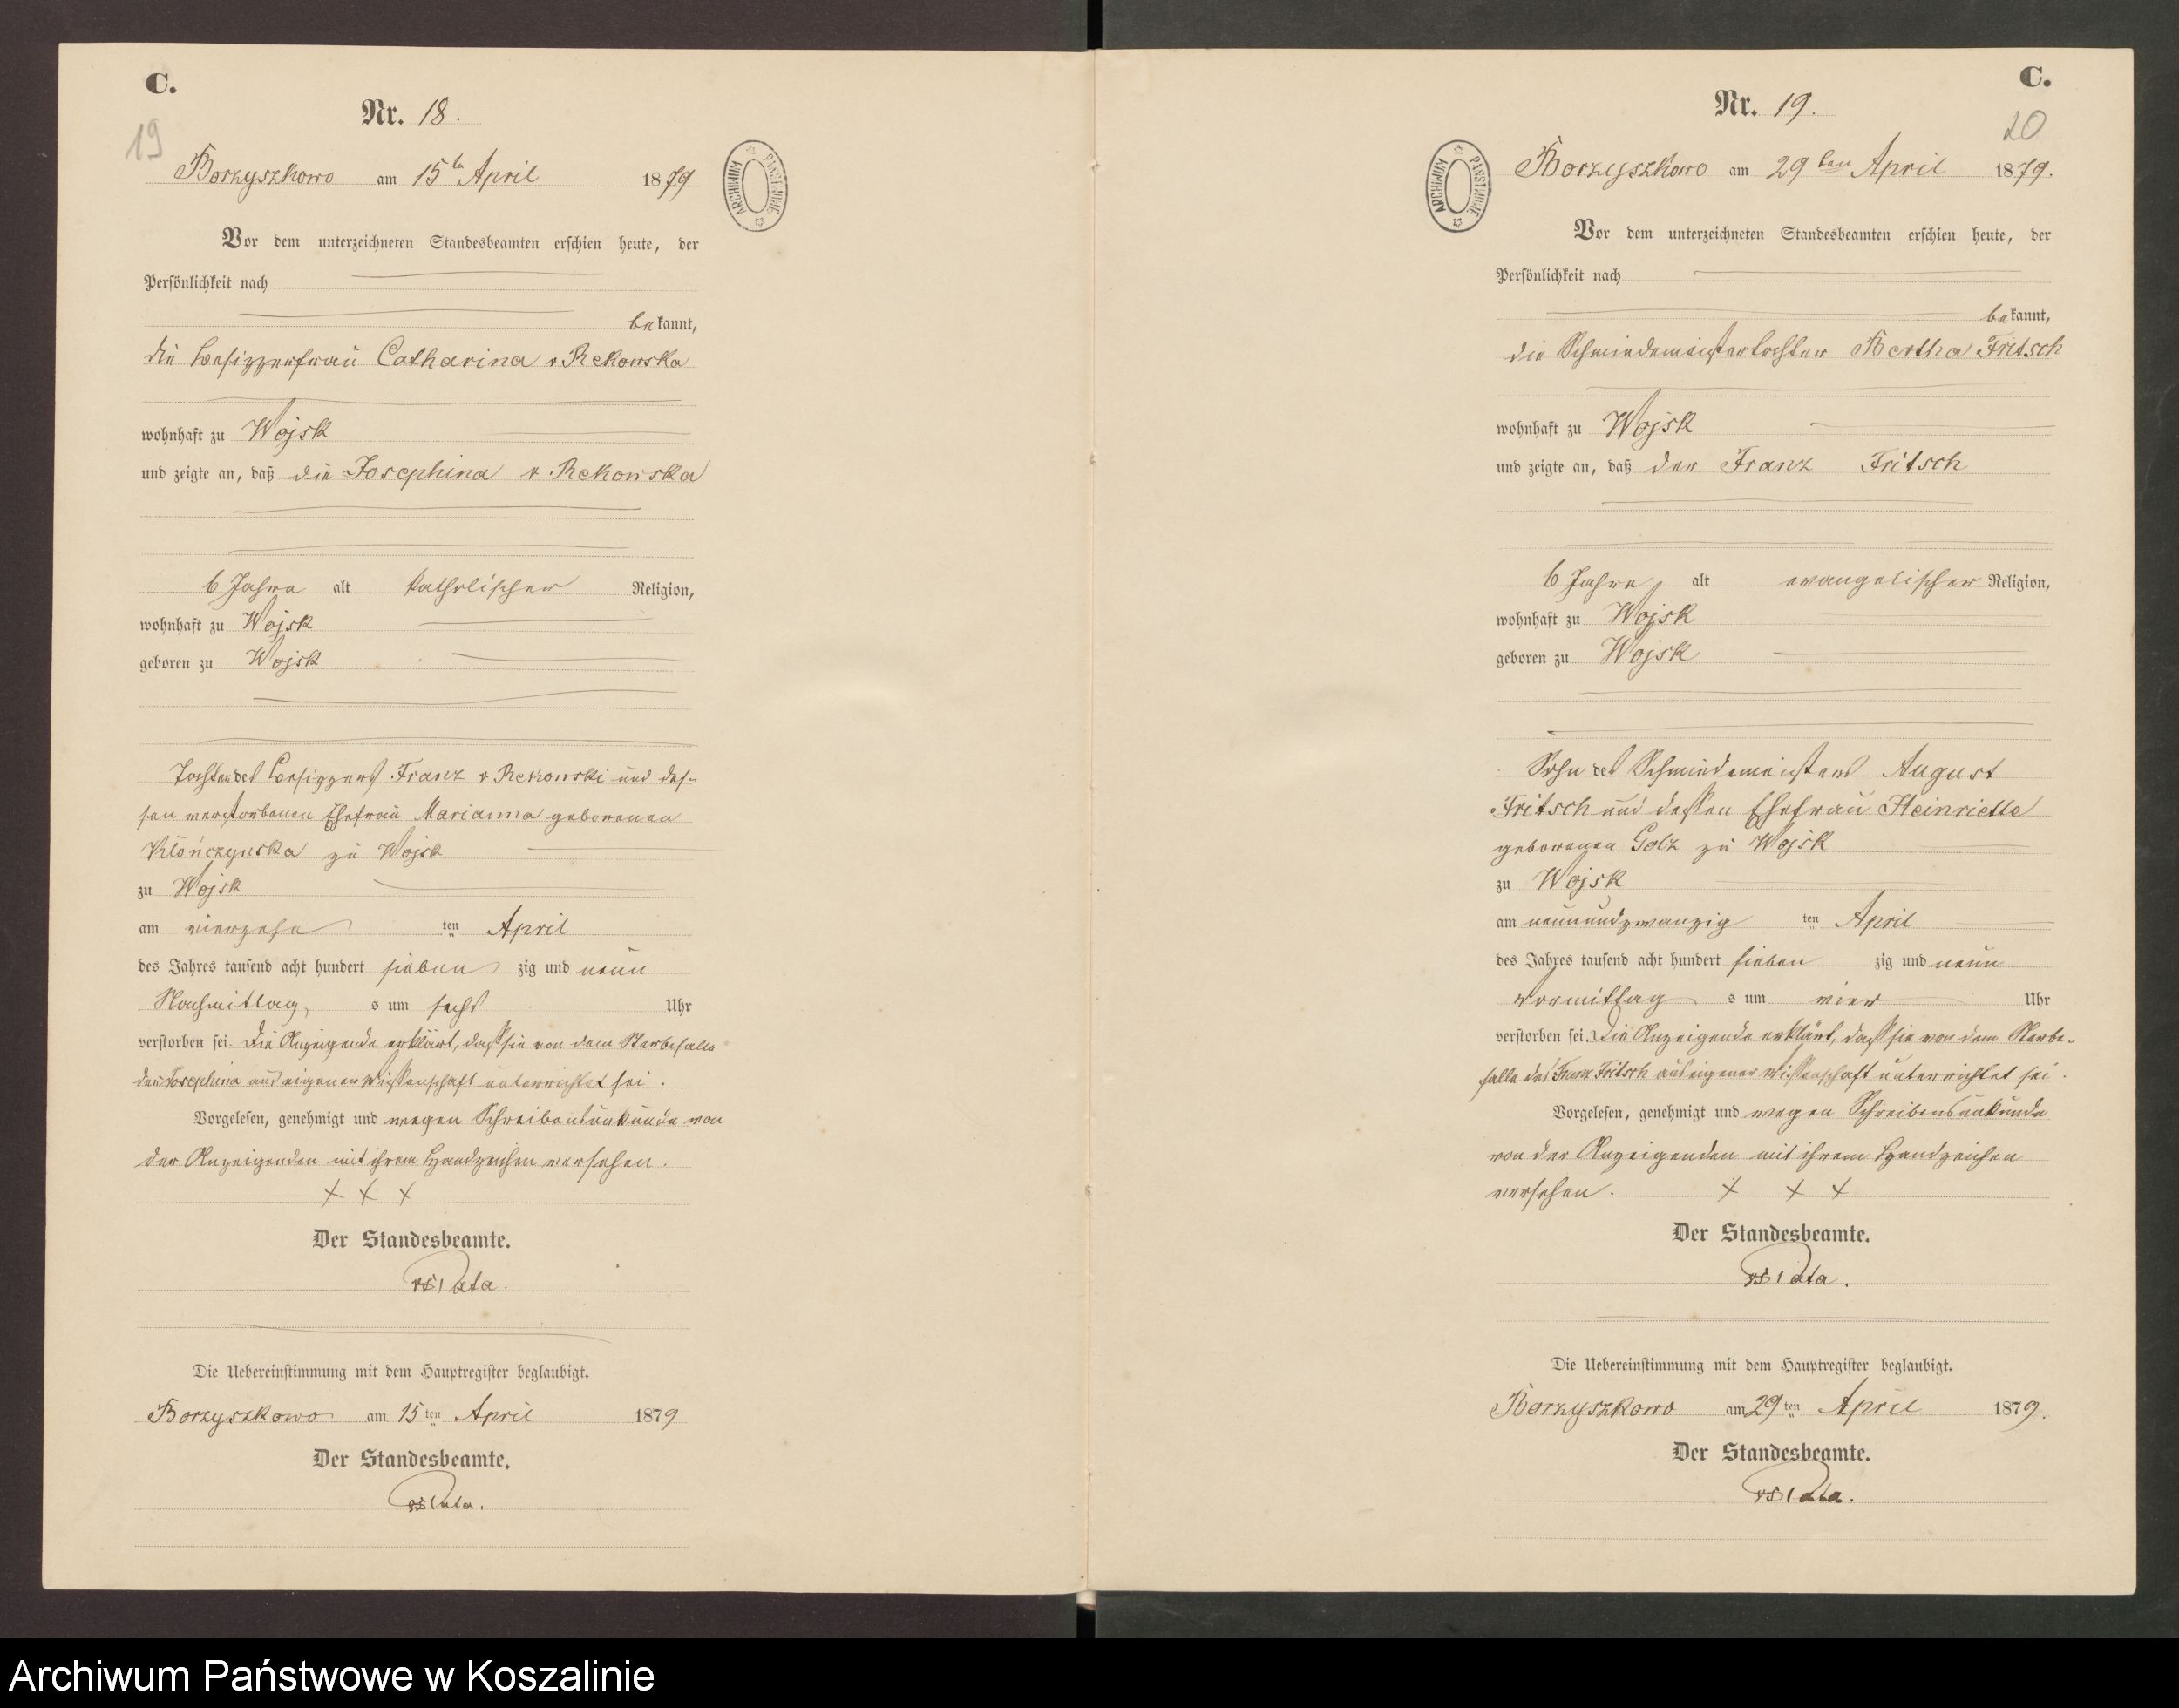 C.
Nr. 18.
19
Borzyszkowo am 15ten April 1879
ARCHIWUM PAŃSTWOWE
Vor dem unterzeichneten Standesbeamten erschien heute, der
Persönlichkeit nach
bekannt,
die Besitzerfrau Catharina v Rekowska
wohnhaft zu Wojsk
und zeigte an, daß die Josephina v Rekowska
6 Jahre alt katholischer Religion,
wohnhaft zu Wojsk
geboren zu Wojsk
Tochter des Besitzers Franz v Rekowski und des-
sen verstorbenen Ehefrau Marianna geborenen
Klończynska zu Wojsk
zu Wojsk
am vierzehn ten April
des Jahres tausend acht hundert sieben zig und neun
Nachmittag s um sechs Uhr
verstorben sei. Die Anzeigende erklärt, daß sie von dem Sterbefalle
der Josephina aus eigener Wissenschaft unterrichtet sei.
Vorgelesen, genehmigt und wegen Schreibensunkunde von
der Anzeigenden mit ihrem Handzeichen versehen.
+ + +
Der Standesbeamte.
Die Uebereinstimmung mit dem Hauptregister beglaubigt.
Borzyszkowo am 15ten April 1879
Der Standesbeamte.
C.
Nr. 19.
20
Borzyszkowo am 29ten April 1879.
ARCHIWUM PAŃSTWOWE
Vor dem unterzeichneten Standesbeamten erschien heute, der
Persönlichkeit nach
bekannt,
die Schmiedemeistertochter Bertha Fritsch
wohnhaft zu Wojsk
und zeigte an, daß der Franz Fritsch
6 Jahre alt evangelischer Religion,
wohnhaft zu Wojsk
geboren zu Wojsk
Sohn des Schmiedemeisters August
Fritsch und dessen Ehefrau Heinriette
geborenen Golz zu Wojsk
zu Wojsk
am neunundzwanzig ten April
des Jahres tausend acht hundert sieben zig und neun
Vormittag s um vier Uhr
verstorben sei. Die Anzeigende erklärt, daß sie von dem Sterbe-
falle des Franz Fritsch aus eigener Wissenschaft unterrichtet sei.
Vorgelesen, genehmigt und wegen Schreibensunkunde
von der Anzeigenden mit ihrem Handzeichen
versehen. + + +
Der Standesbeamte.
Die Uebereinstimmung mit dem Hauptregister beglaubigt.
Borzyszkowo am 29ten April 1879.
Der Standesbeamte.
Archiwum Państwowe w Koszalinie